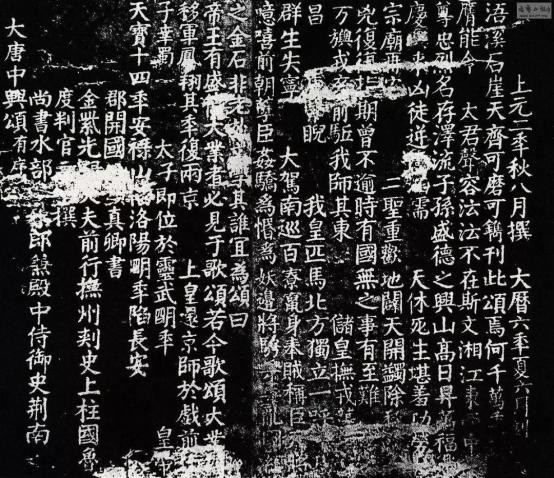 大唐中興頌有序
尚書水部郎兼殿中侍御史荊南
度判官撰
金紫光大夫前行撫州刺史上柱國魯
郡開國真卿書
天寶十四年安祿山陷洛陽明年陷長安
子幸蜀 太子即位於靈武明年 皇帝
移軍鳳翔其年復兩京 上皇還京師於戲前
帝王有盛大業者必見于歌頌若今歌頌大業
之金石非老學其誰宜為頌曰
噫嘻前朝孽臣姦驕為惛為妖邊將騁亂國
群生失寧 大駕南巡百寮竄身奉賊稱臣將
昌睨 我皇匹馬北方獨立一呼
万旟戎卒前驅我師其東 儲皇撫戎蕩
兇復復指期曾不逾時有國無之事有至難
宗廟再安 二聖重歡地闢天開蠲除
慶來凶徒逆 天休死生堪羞功勞
尊忠烈名存澤流子孫盛德之興山高日昇萬福
膺能令 大君聲容沄沄不在斯文湘江東中
浯溪石崖天齊可磨可鐫刊此頌焉何千萬年
上元二年秋八月撰 大曆六年夏六月刻